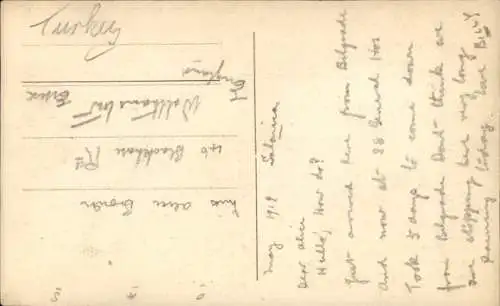 Turkey
Miss Alice Brown
46 Blackhorse Rd
Walthamstow
Essex
England
May 1919 Salonica
Dear Alice
Hullo, How do?
Just arrived here from Belgrade
And now at 28 General Hos
Took 5 days to come down
from Belgrade Don't think we
are stopping here very long
today.
love Billy